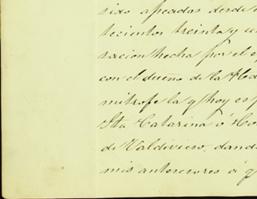 sido apeadas desde
tecientos treinta y
sacion hecha por el
con el dueno de la
mitrofe la q hoy es
Sta Catarina ó
de Valdivieso, dand
mis antecesores ó q